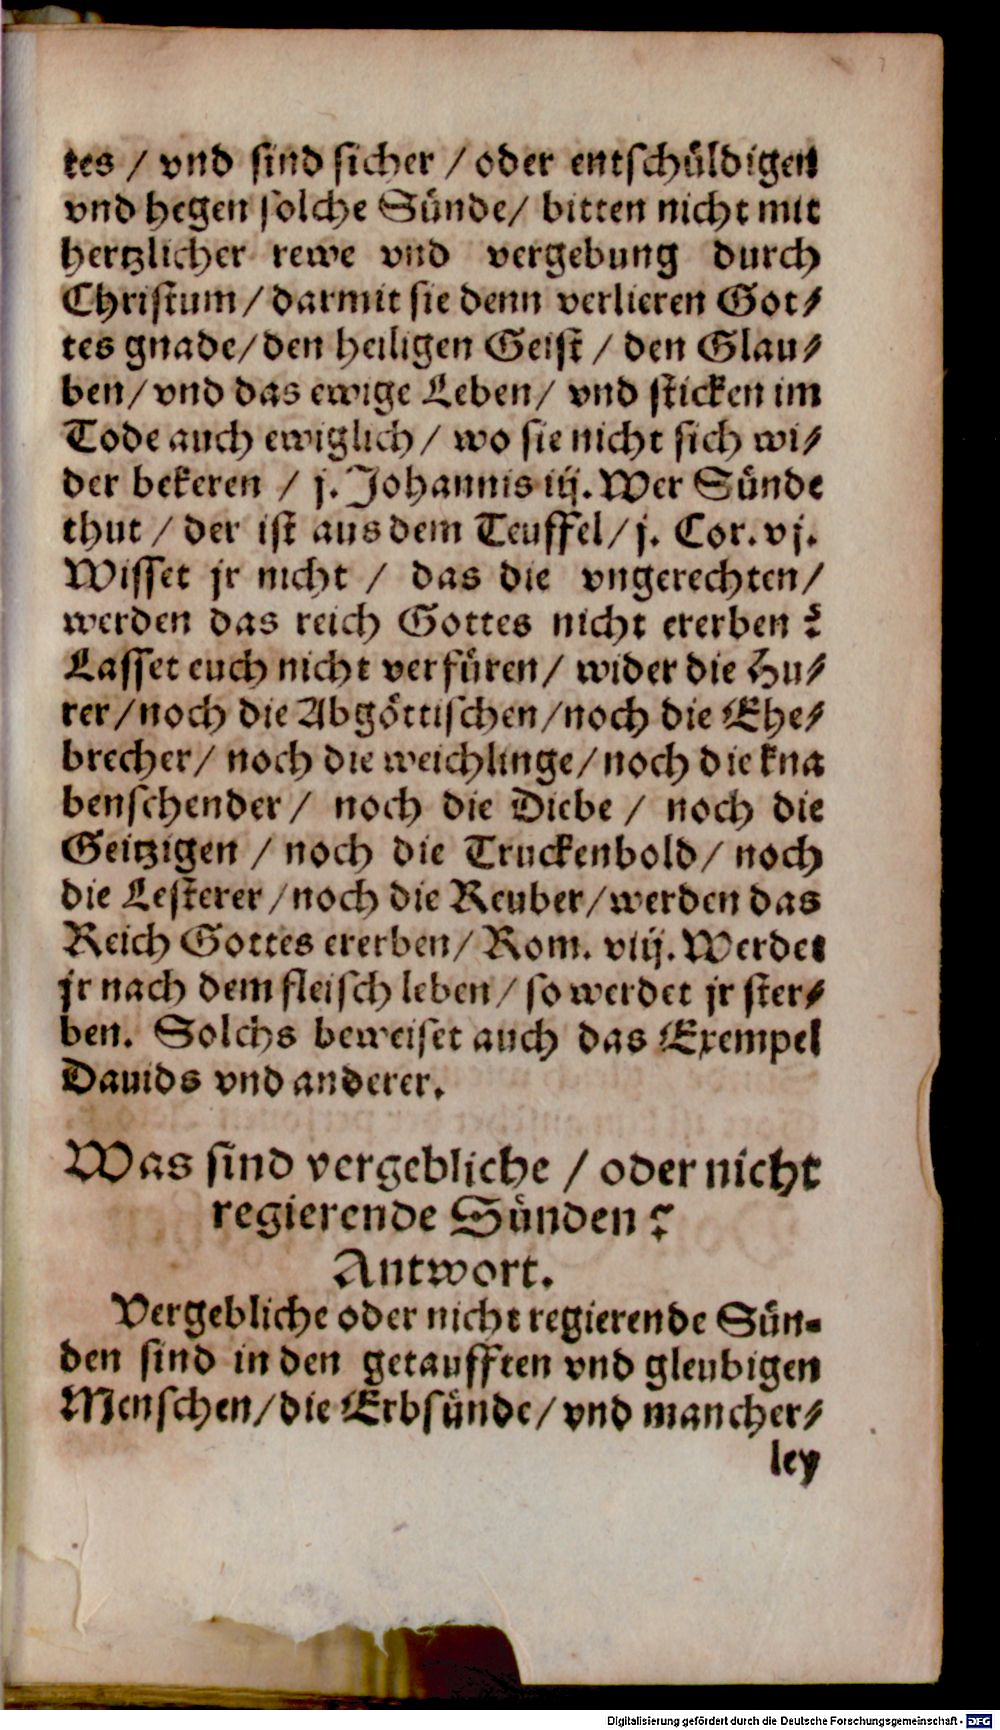 tes / vnd sind sicher / oder entschüldigen
vnd hegen solche Sünde/ bitten nicht mit
hertzlicher rewe vnd vergebung durch
Christum / darmit sie denn verlieren Got⸗
tes gnade/den heiligen Geist / den Glau⸗
ben/ vnd das ewige Leben/ vnd sticken im
Tode auch ewiglich/ wo sie nicht sich wi⸗
der bekeren / j. Johannis iij. Wer Sünde
thut / der ist aus dem Teuffel/ j. Cor. vj.
Wisset jr nicht / das die vngerechten/
werden das reich Gottes nicht ererben?
Lasset euch nicht verfüren/ wider die Hu⸗
rer/noch die Abgöttischen/noch die Ehe⸗
brecher/ noch die weichlinge/noch die kna
benschender/ noch die Diebe / noch die
Geitzigen / noch die Truckenbold/ noch
die Lesterer /noch die Reuber/werden das
Reich Gottes ererben/ Rom. viij. Werdet
jr nach dem fleisch leben/ so werdet jr ster⸗
ben. Solchs beweiset auch das Exempel
Dauids vnd anderer.
Was sind vergebliche / oder nicht
regierende Sünden?
Antwort.
Vergebliche oder nicht regierende Sün⸗
den sind in den getaufften vnd gleubigen
Menschen/die Erbsünde/ vnd mancher⸗
ley
Digitalisierung gefördert durch die Deutsche Forschungsgemeinschaft - DFG